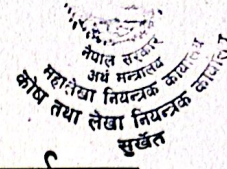 नेपाल सरकार
अर्थ मन्त्रालय
महालेखा नियन्त्रक कार्यालय
कोष तथा लेखा नियन्त्रक कार्यालय
सुर्खेत